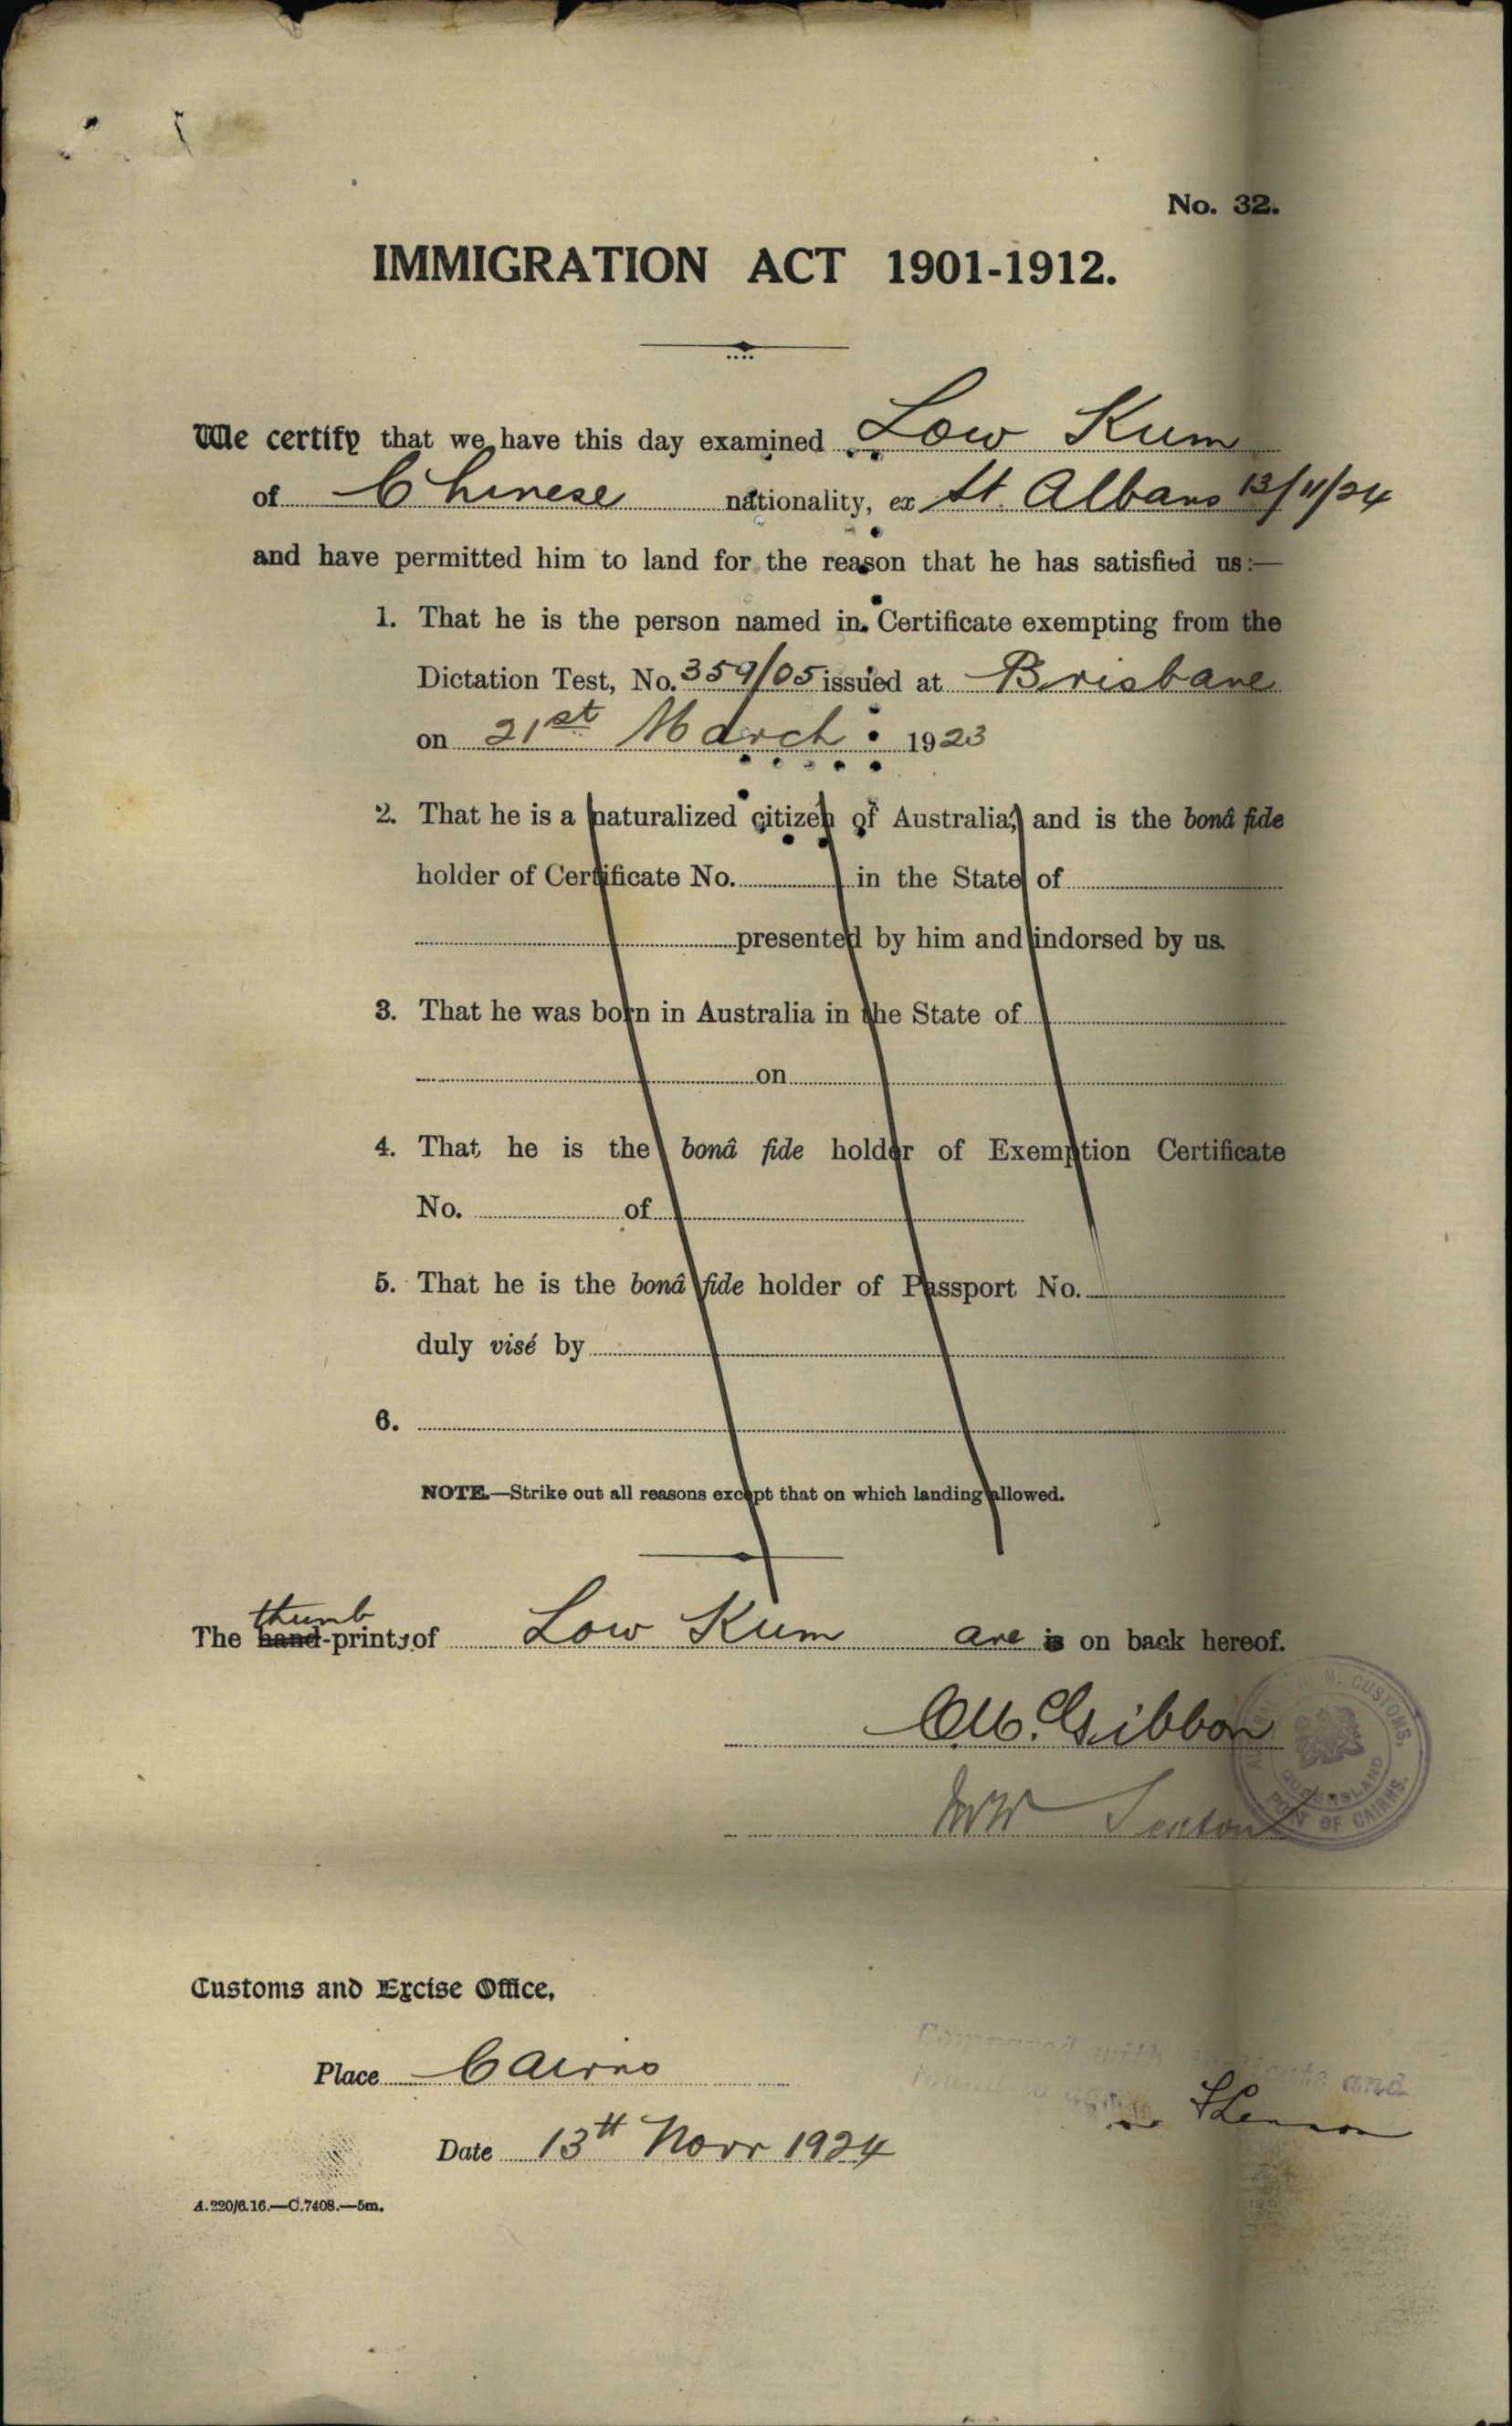 No. 32.
IMMIGRATION ACT 1901-1912.
We certify that we have this day examined Low Kum
of Chinese nationality, ex St. Albans 13/11/24
and have permitted him to land for the reason that he has satisfied us:—
1. That he is the person named in Certificate exempting from the
Dictation Test, No. 359/05 issued at Brisbane
on 21st March 1923
2. That he is a naturalized citizen of Australia, and is the bonâ fide
holder of Certificate No. in the State of
presented by him and indorsed by us.
3. That he was born in Australia in the State of
on
4. That he is the bonâ fide holder of Exemption Certificate
No. of
5. That he is the bonâ fide holder of Passport No.
duly visé by
6.
NOTE.—Strike out all reasons except that on which landing allowed.
thumb
The hand-prints of Low Kum are is on back hereof.
Gibbon
H.M. CUSTOMS.
QUEENSLAND
PORT OF CAIRNS.
Seaton
Customs and Excise Office,
Place Cairns
and
Date 13th Novr 1924
A.220/6.16.—C.7408.—5m.